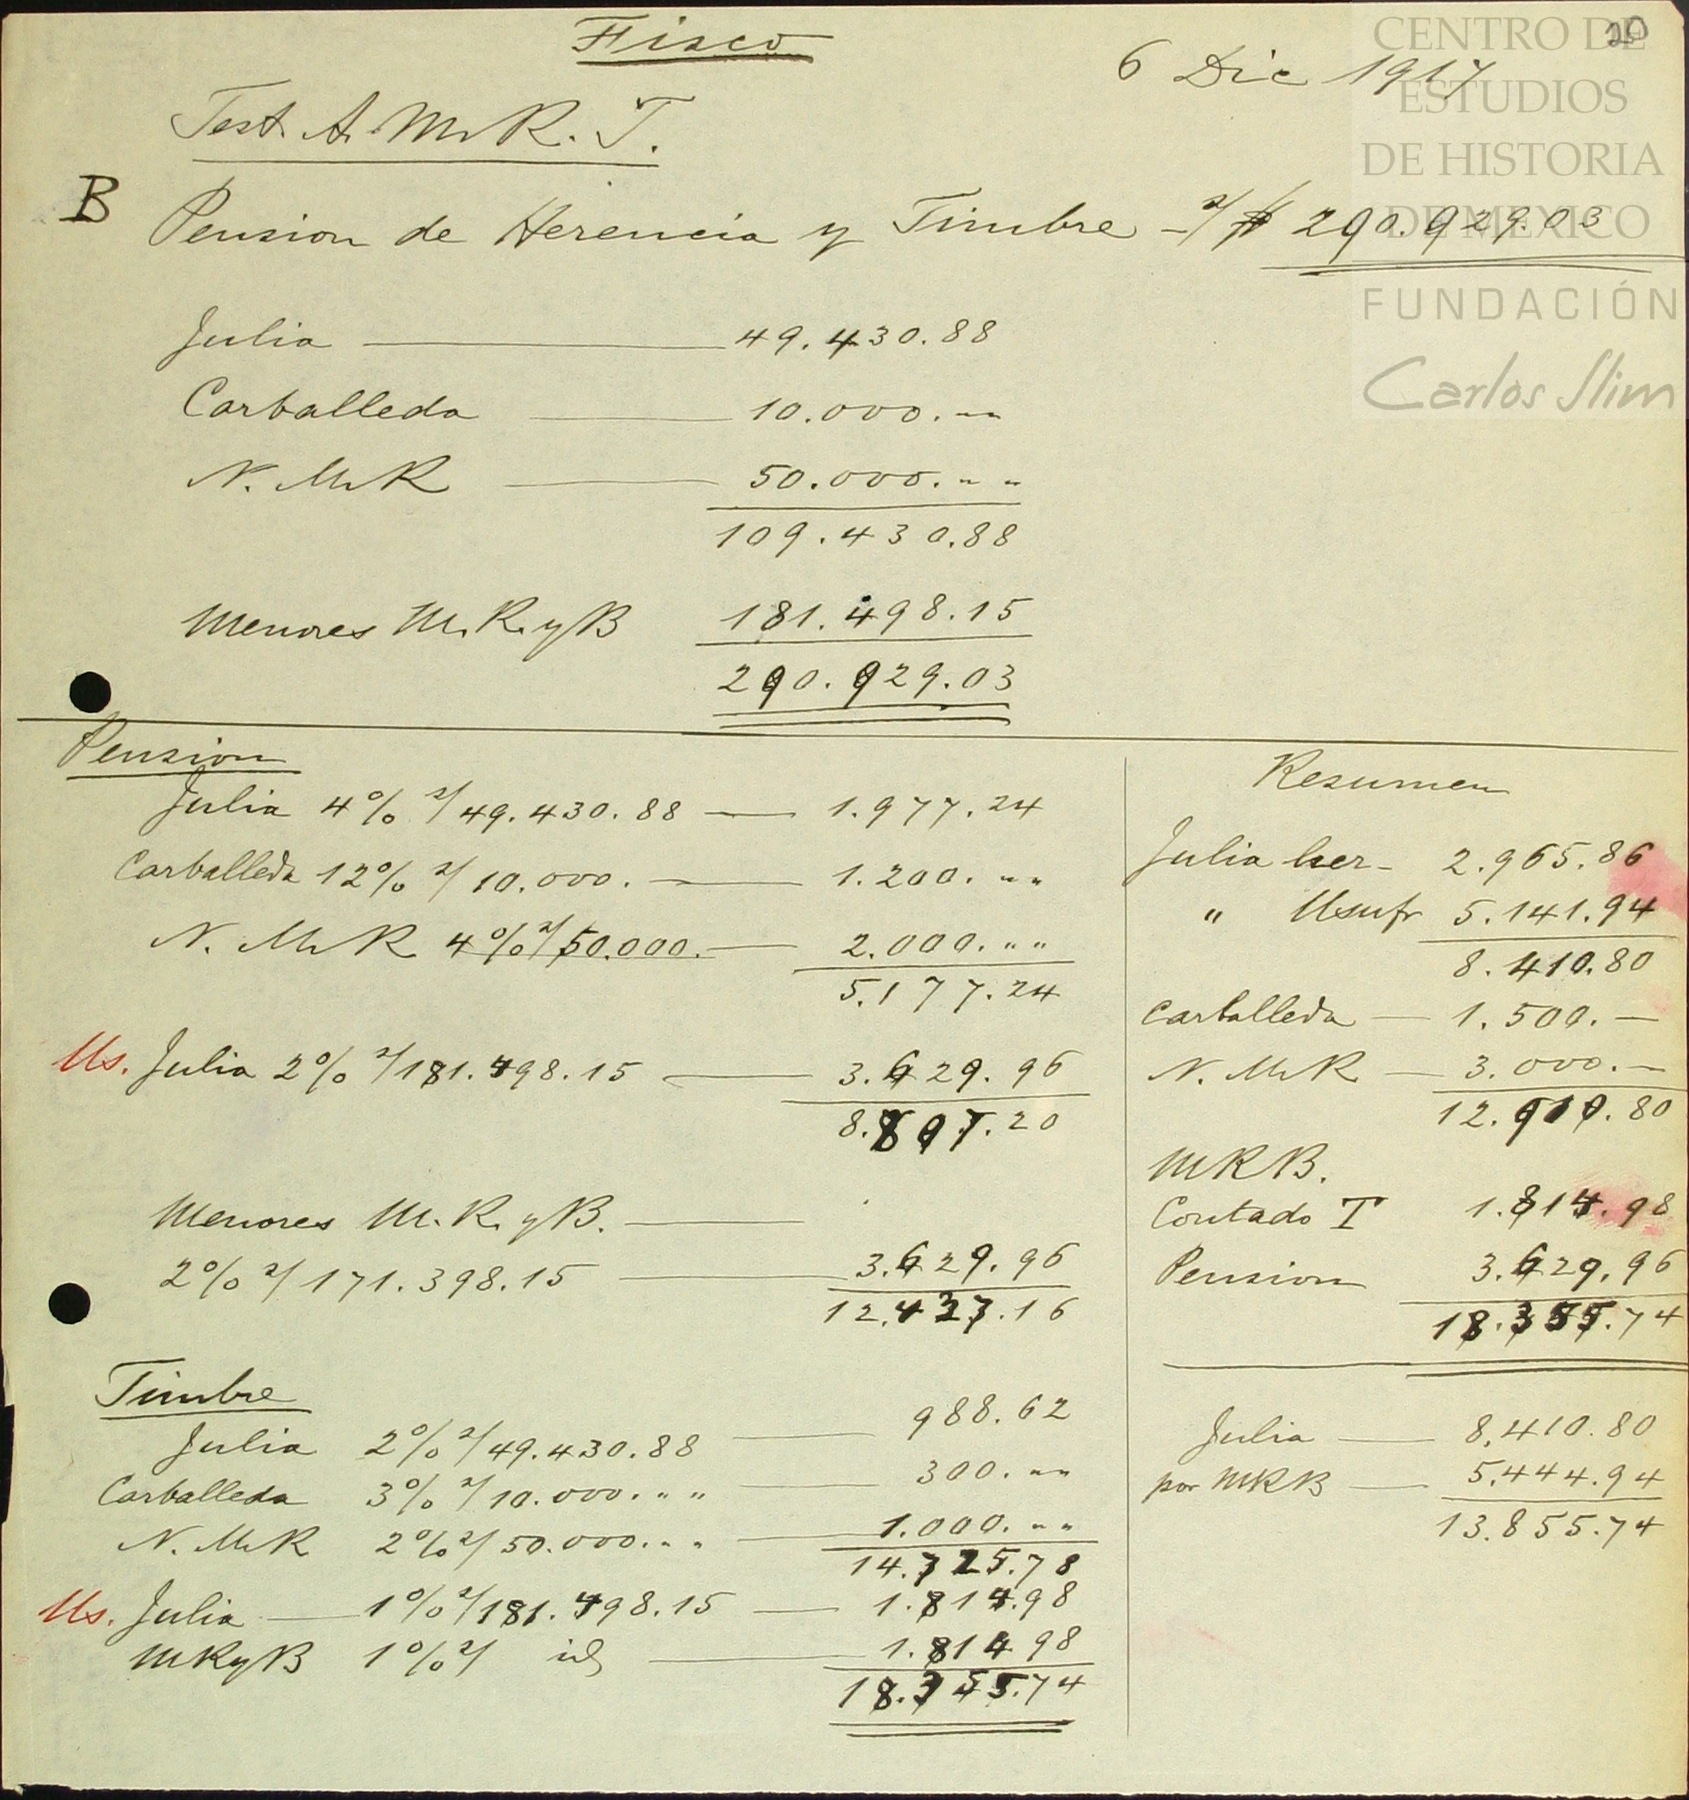 20
Fisco
6 Dic 1917
Test. A. M. R. T.
B Pension de Herencia y Timbre - s/ $ 290.929.03
Julia 49.430.88
Carballeda 10.000. " "
N. M. R 50.000. " "
109.430.88
Menores M. R. y B 181.498.15
290.929.03
Pension
Julia 4% s/ 49.430.88 — 1.977.24
Carballeda 12% s/ 10.000. — 1.200. " "
N. M. R 4% s/ 50.000. — 2.000. " "
5.177.24
Us. Julia 2% s/ 181.498.15 — 3.629.96
8.807.20
Menores M. R. y B. —
2% s/ 171.398.15 — 3.629.96
12.437.16
Timbre
Julia 2% s/ 49.430.88 — 988.62
Carballeda 3% s/ 10.000. " " — 300. " "
N. M. R 2% s/ 50.000. " " — 1.000. " "
14.725.78
Us. Julia — 1% s/ 181.498.15 — 1.814.98
MRyB 1% s/ id — 1.814.98
18.355.74
Resumen
Julia her - 2.965.86
" Usufr 5.141.94
8.410.80
Carballeda — 1.500. —
N. M. R — 3.000. —
12.910.80
MRB.
Contado T 1.814.98
Pension 3.629.96
18.355.74
Julia — 8,410.80
por MRB — 5,444.94
13.855.74
CENTRO DE
ESTUDIOS
DE HISTORIA
DE MEXICO
FUNDACIÓN
Carlos Slim